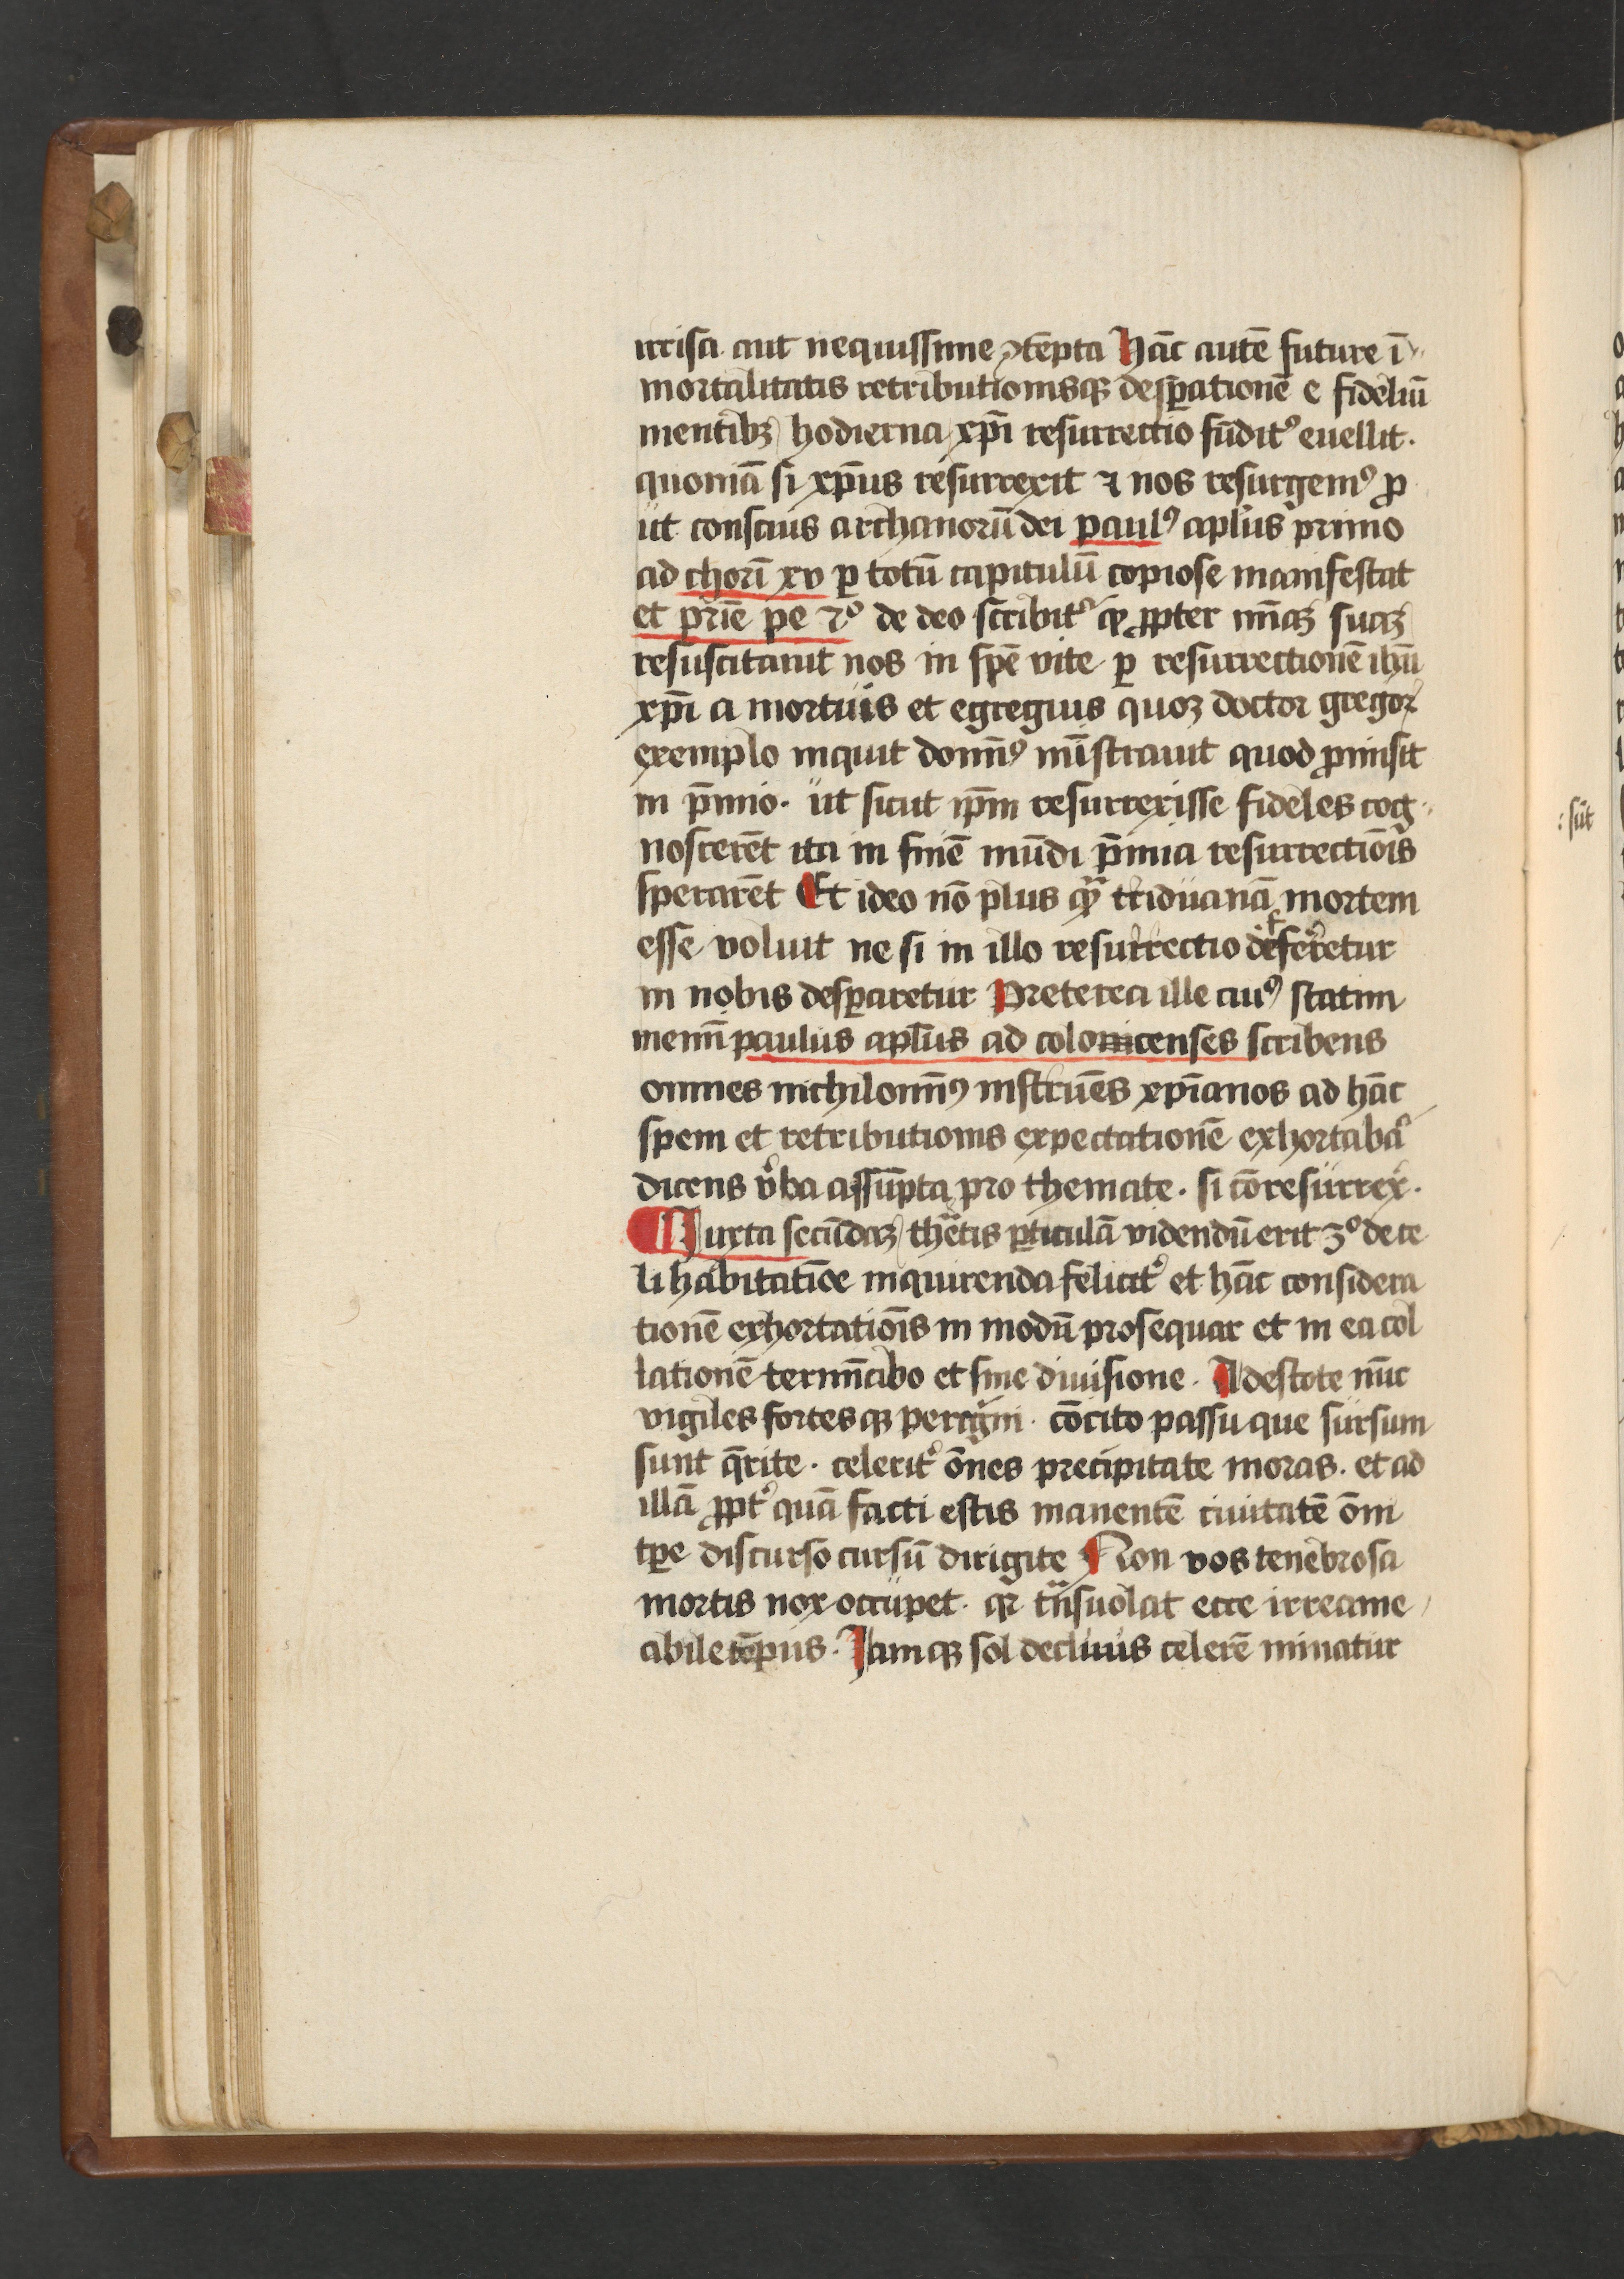 irrisa aut nequissime ꝯtēpta Hāc autē future ī
mortalitatis retributionisqꝫ desꝑationē e fideliū
mentibꝫ hodierna xp̄i resurrectio fūditꝰ euellit.
quoniā si xp̄us resurrexit ⁊ nos resurgemꝰ ꝓ
ut conscius archanorū dei paulꝰ apl̄us primo
ad chorī xv ꝑ totū capitulū copiose manifestat
et prīe pe ⁊ͦ de deo scribitᷣ ꝙ ꝓpter mīaꝫ suaꝫ
resuscitauit nos in spē vite ꝑ resurrectionē ihū
xp̄i a mortuis et egregius quoꝫ doctor gregoꝛ
exemplo inquit domīꝰ mīstrauit quod ꝓmisit
in p̄mio. ut sicut ip̄m resurrexisse fideles cog
noscerēt ita in finē mūdi p̄mia resurrectiōis
sperarēt Et ideo nō plus ꝙᷓ triduanā mortem
esse voluit ne si in illo resurrectio defferretur
in nobis desꝑaretur Preterea ille cuiꝰ statim
memī paulus apl̄us ad colonicenses scribens
omnes nichilomīꝰ instruēs xp̄ianos ad hāc
spem et retributionis expectationē exhortabaᷣ
dicens v̓ba assūpta pro themate. si cōresurrex.
Iuxta secūdaꝫ thᷓetis ꝑticulā videndū erit 3ͦ de ce
li habitatiōe inquirenda felicitᷣ et hāc considera
tionē exhortatiōis in modū prosequar et in ea col
lationē termīabo et sine diuisione. Adestote nūc
vigiles fortesqꝫ peregͥni. cōcito passu que sursum
sunt q̄rite. celeritᷣ ōnes precipitate moras. et ad
illā ꝓptᷣ quā facti estis manentē ciuitatē ōm
tꝑe discurso cursū dirigite Non vos tenebrosa
mortis nox occupet. qꝛ tᷓnsuolat ecce irreame
abile tēpus. Iamqꝫ sol decliuus celerē minatur
: sūt